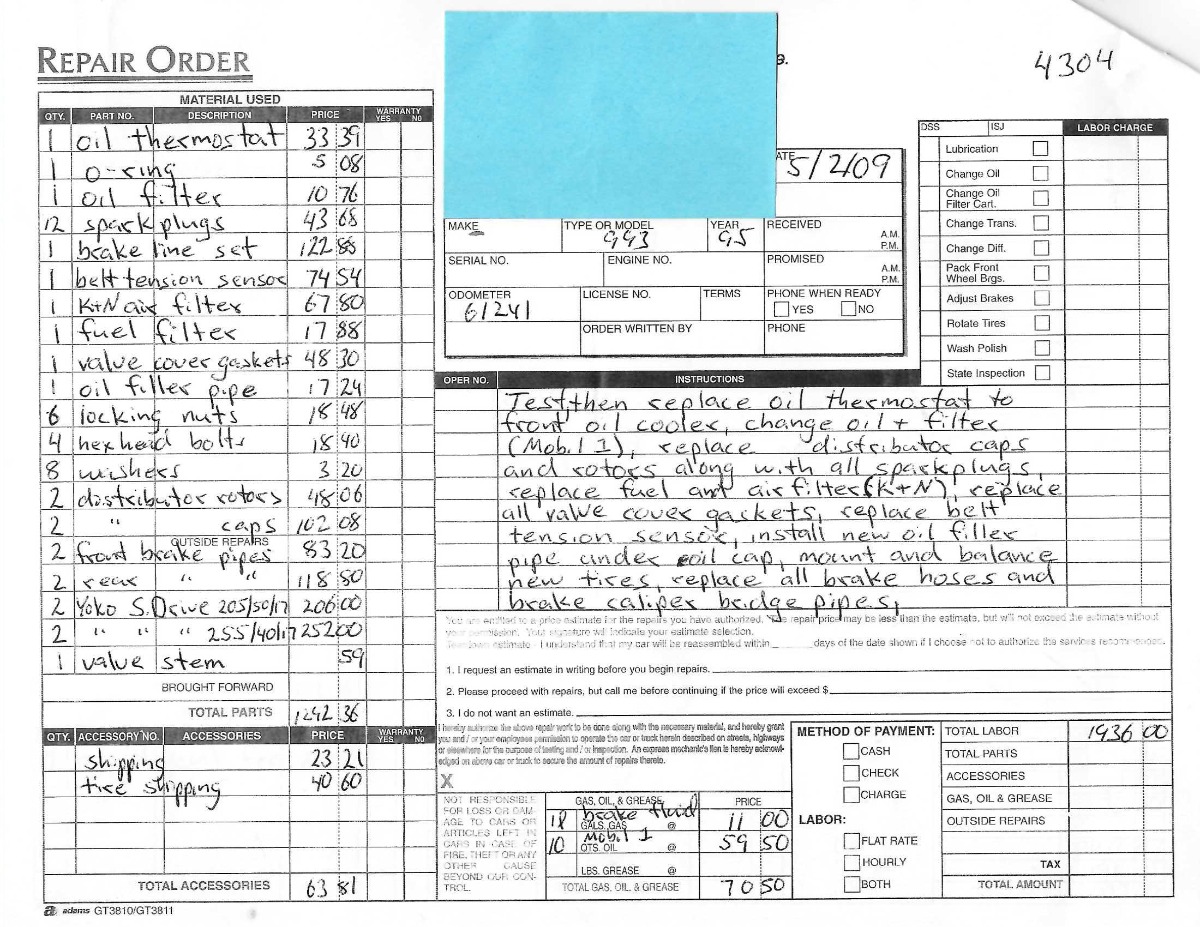 REPAIR ORDER
4304
MATERIAL USED
QTY. PART NO. DESCRIPTION PRICE WARRANTY YES NO
1 oil thermostat 33 39
1 o-ring 5 08
1 oil filter 10 76
12 spark plugs 43 68
1 brake line set 122 88
1 belt tension sensor 74 54
1 K+N air filter 67 80
1 fuel filter 17 88
1 valve cover gaskets 48 30
1 oil filler pipe 17 24
6 locking nuts 18 48
4 hexhead bolts 18 40
8 washers 3 20
2 distributor rotors 48 06
2 " caps 102 08
OUTSIDE REPAIRS
2 front brake pipes 83 20
2 rear " " 118 80
2 Yoko S.Drive 205/50/17 206 00
2 " " " 255/40/17 252 00
1 valve stem 59
BROUGHT FORWARD
TOTAL PARTS 1242 36
QTY. ACCESSORY NO. ACCESSORIES PRICE WARRANTY YES NO
shipping 23 21
tire shipping 40 60
TOTAL ACCESSORIES 63 81
adams GT3810/GT3811
5/2/09
MAKE TYPE OR MODEL 993 YEAR 95 RECEIVED A.M. P.M.
SERIAL NO. ENGINE NO. PROMISED A.M. P.M.
ODOMETER 61241 LICENSE NO. TERMS PHONE WHEN READY YES NO
ORDER WRITTEN BY PHONE
DSS ISJ LABOR CHARGE
Lubrication
Change Oil
Change Oil Filter Cart.
Change Trans.
Change Diff.
Pack Front Wheel Brgs.
Adjust Brakes
Rotate Tires
Wash Polish
State Inspection
OPER NO. INSTRUCTIONS
Test, then replace oil thermostat to
front oil cooler, change oil + filter
(Mobil 1), replace distributor caps
and rotors along with all sparkplugs,
replace fuel and air filter (K+N), replace
all valve cover gaskets, replace belt
tension sensor, install new oil filler
pipe under oil cap, mount and balance
new tires, replace all brake hoses and
brake caliper bridge pipes,
You are entitled to a price estimate for the repairs you have authorized. The repair price may be less than the estimate, but will not exceed the estimate without
your permission. Your signature will indicate your estimate selection.
I understand that my car will be reassembled within ______ days of the date shown if I choose not to authorize the services recommended.
1. I request an estimate in writing before you begin repairs.
2. Please proceed with repairs, but call me before continuing if the price will exceed $
3. I do not want an estimate.
I hereby authorize the above repair work to be done along with the necessary material, and hereby grant
you and / or your employees permission to operate the car or truck herein described on streets, highways
or elsewhere for the purpose of testing and / or inspection. An express mechanic's lien is hereby acknowl-
edged on above car or truck to secure the amount of repairs thereto.
X
NOT RESPONSIBLE
FOR LOSS OR DAM-
AGE TO CARS OR
ARTICLES LEFT IN
CARS IN CASE OF
FIRE, THEFT OR ANY
OTHER CAUSE
BEYOND OUR CON-
TROL.
GAS, OIL, & GREASE PRICE
brake fluid 11 00
GALS. GAS @
10 Mobil 1 59 50
QTS. OIL @
LBS. GREASE @
TOTAL GAS, OIL & GREASE 70 50
METHOD OF PAYMENT:
CASH
CHECK
CHARGE
LABOR:
FLAT RATE
HOURLY
BOTH
TOTAL LABOR 1936 00
TOTAL PARTS
ACCESSORIES
GAS, OIL & GREASE
OUTSIDE REPAIRS
TAX
TOTAL AMOUNT